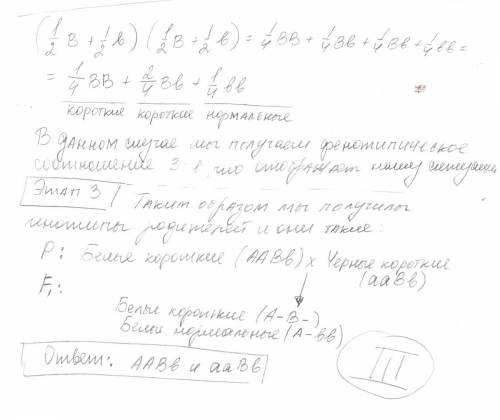 (1/2 B + 1/2 b) (1/2 B + 1/2 b) = 1/4 BB + 1/4 Bb + 1/4 Bb + 1/4 bb =
= 1/4 BB + 2/4 Bb + 1/4 bb
короткие короткие нормальные
В данном случае мы получаем фенотипическое
соотношение 3:1, что отображает нашу ситуацию
Этап 3 Таким образом мы получили
генотипы родителей и они такие:
P: Белые короткие (AABb) x Черные короткие
(aaBb)
F₁:
Белые короткие (A-B-)
Белые нормальные (A-bb)
Ответ: AABb и aaBb
III